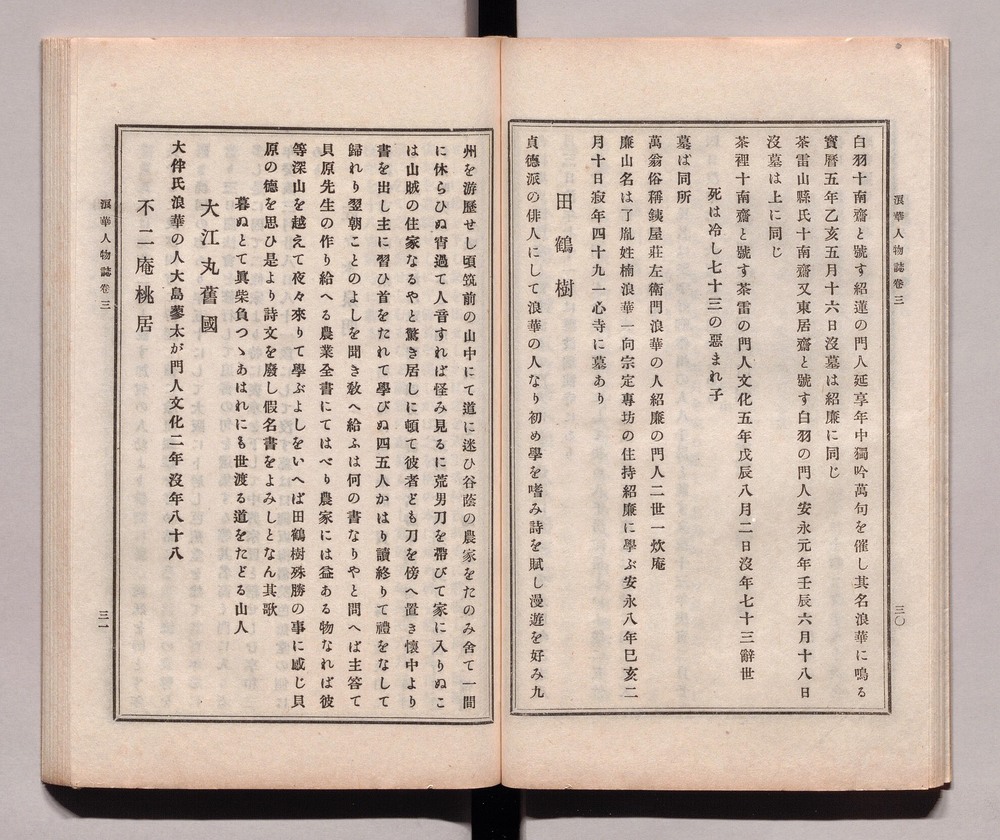 浪華人物誌卷三
三〇
白羽十南齋と號す紹蓮の門人延享年中獨吟萬句を催し其名浪華に鳴る
寶曆五年乙亥五月十六日沒墓は紹廉に同じ
茶雷山縣氏十南齋又東居齋と號す白羽の門人安永元年壬辰六月十八日
沒墓は上に同じ
茶裡十南齋と號す茶雷の門人文化五年戊辰八月二日沒年七十三辭世
死は冷し七十三の惡まれ子
墓は同所
萬翁俗稱錢屋莊左衞門浪華の人紹廉の門人二世一炊庵
廉山名は了胤姓楠浪華一向宗定專坊の住持紹廉に學ぶ安永八年巳亥二
月十日寂年四十九一心寺に墓あり
田鶴樹
貞德派の俳人にして浪華の人なり初め學を嗜み詩を賦し漫遊を好み九
州を游歷せし頃筑前の山中にて道に迷ひ谷蔭の農家をたのみ舍て一間
に休らひぬ宵過て人音すれば怪み見るに荒男刀を帶びて家に入りぬこ
は山賊の住家なるやと驚き居しに頓て彼者ども刀を傍へ置き懷中より
書を出し主に習ひ首をたれて學びぬ四五人かはり讀終りて禮をなして
歸れり翌朝ことのよしを聞き敎へ給ふは何の書なりやと問へば主答て
貝原先生の作り給へる農業全書にてはべり農家には益ある物なれば彼
等深山を越えて夜々來りて學ぶよしをいへば田鶴樹殊勝の事に感じ貝
原の德を思ひ是より詩文を廢し假名書をよみしとなん其歌
暮ぬとて眞柴負つゝあはれにも世渡る道をたどる山人
大江丸舊國
大伴氏浪華の人大島蓼太が門人文化二年沒年八十八
不二庵桃居
浪華人物誌卷三
三一